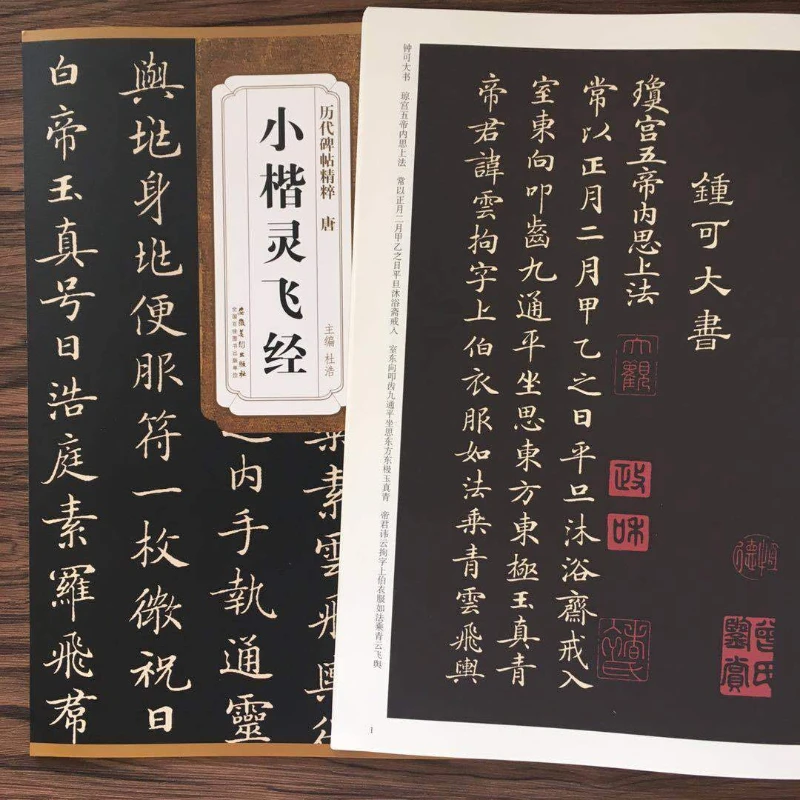 历代碑帖精粹 唐
小楷灵飞经
主编 杜浩
安徽美术出版社
全国百佳图书出版单位
素雲飛輿從
内手執通靈
與兆身兆便服符一枚微祝曰
白帝玉真号曰浩庭素羅飛帬
鍾可大書
瓊宫五帝内思上法
常以正月二月甲乙之日平旦沐浴齋戒入
室東向叩齒九通平坐思東方東極玉真青
帝君諱雲拘字上伯衣服如法乘青雲飛輿
大觀
政和
曾氏鑒賞
钟可大书 琼宫五帝内思上法 常以正月二月甲乙之日平旦沐浴斋戒入 室东向叩齿九通平坐思东方东极玉真青 帝君讳云拘字上伯衣服如法乘青云飞舆
1